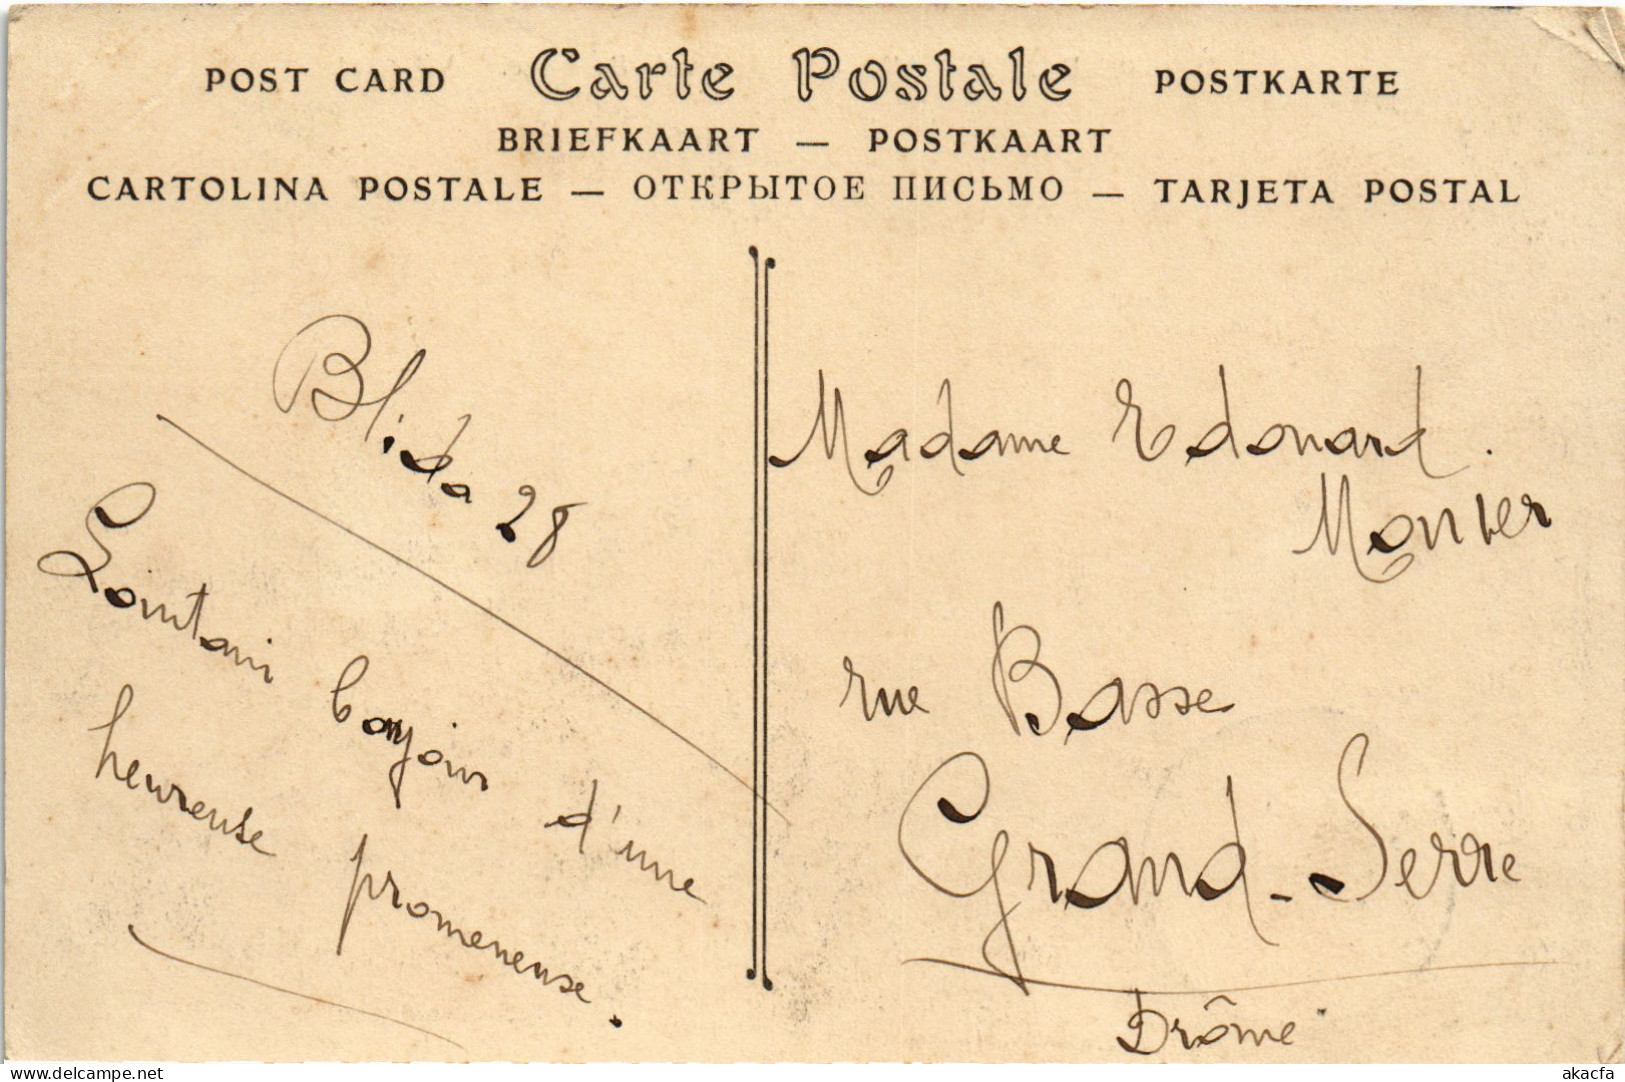 POST CARD Carte Postale POSTKARTE
BRIEFKAART — POSTKAART
CARTOLINA POSTALE — ОТКРЫТОЕ ПИСЬМО — TARJETA POSTAL
Blida 28
Lointain bonjour d'une
heureuse promeneuse.
Madame Edouard
Monier
rue Basse
Grand-Serre
Drôme
www.delcampe.net
akacfa